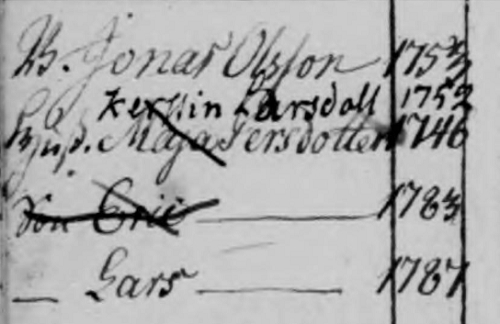 B. Jonas Olsson 1753
Kerstin Larsdott 1752
Hust. Maja Persdotter 1746
Son Eric 1783
— Lars 1787